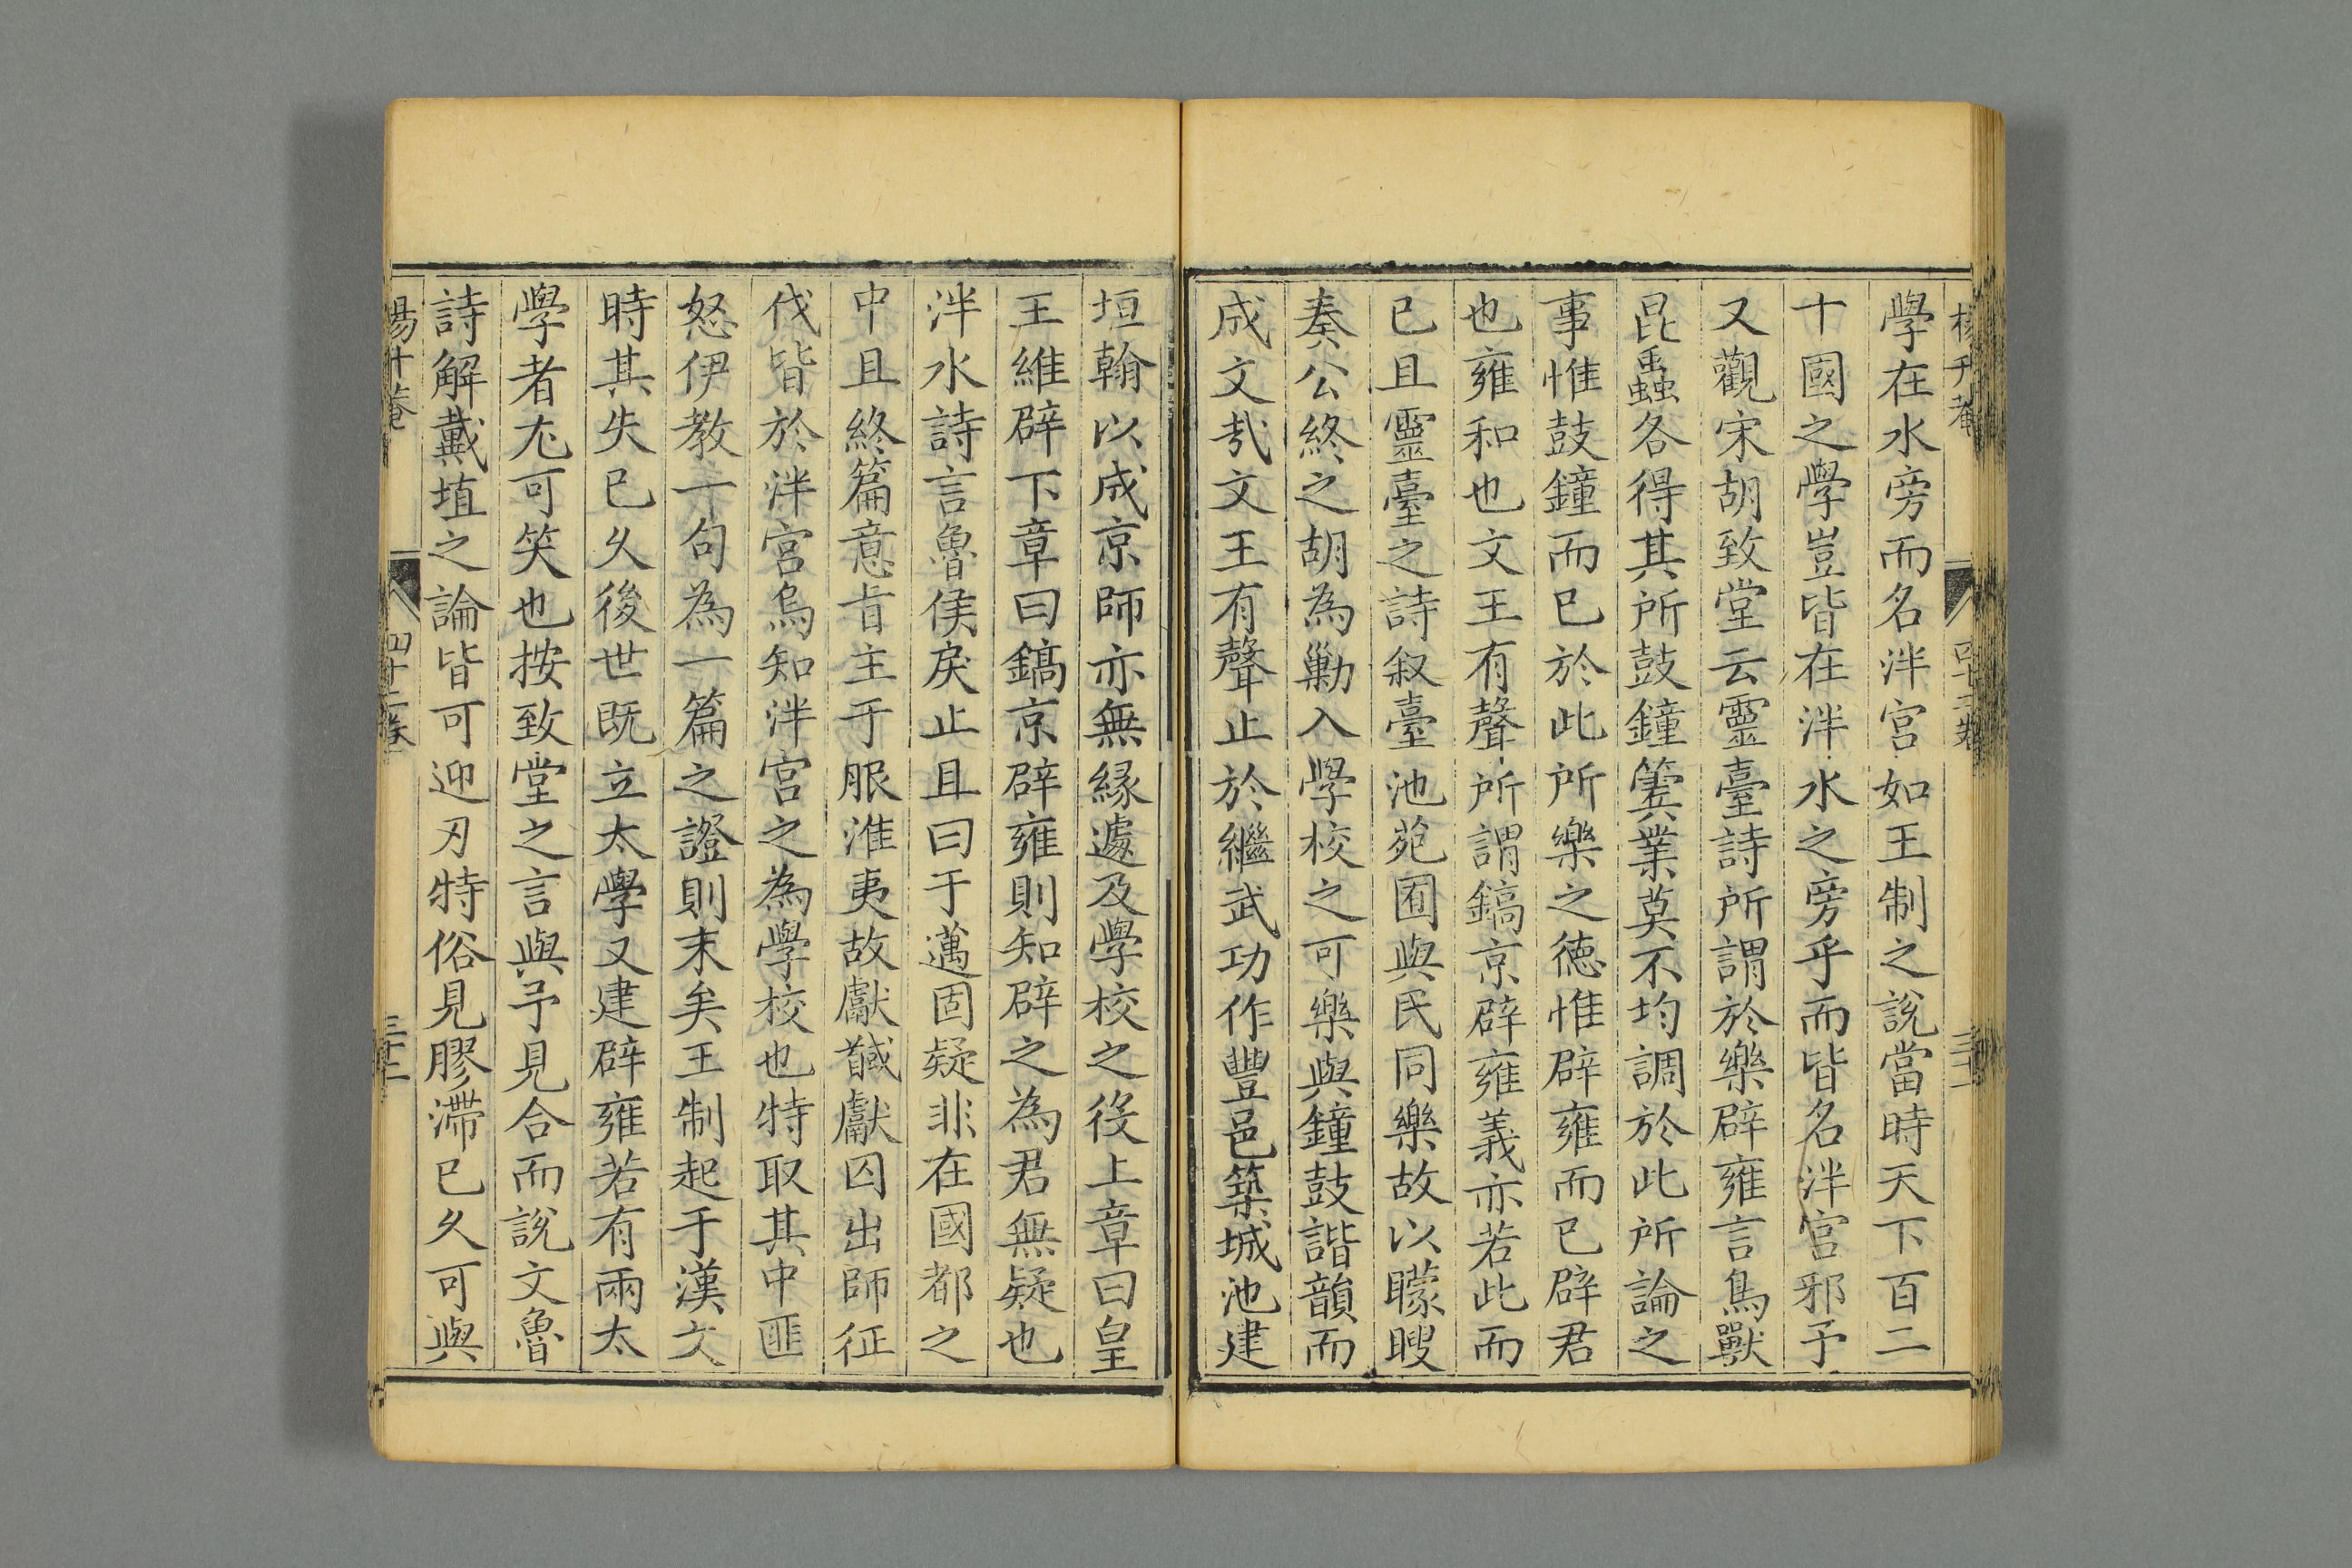 學在水旁而名泮宮如王制之說當時天下百二
十國之學豈皆在泮水之旁乎而皆名泮宮邪予
又觀宋胡致堂云靈臺詩所謂於樂辟雍言鳥獸
昆蟲各得其所鼓鐘簨業莫不均調於此所論之
事惟鼓鐘而已於此所樂之德惟辟雍而已辟君
也雍和也文王有聲所謂鎬京辟雍義亦若此而
已且靈臺之詩叙臺池苑囿與民同樂故以矇瞍
奏公終之胡為勦入學校之可樂與鐘鼓諧韻而
成文㢤文王有聲止於繼武功作豐邑築城池建
垣翰以成京師亦無緣遽及學校之役上章曰皇
王維辟下章曰鎬京辟雍則知辟之為君無疑也
泮水詩言魯侯戾止且曰于邁固疑非在國都之
中且終篇意旨主于服淮夷故獻馘獻囚出師征
伐皆於泮宮烏知泮宮之為學校也特取其中匪
怒伊教一句為一篇之證則末矣王制起于漢文
時其失已久後世既立太學又建辟雍若有兩太
學者尤可笑也按致堂之言與予見合而說文魯
詩解戴埴之論皆可迎刃特俗見膠滯已久可與
四十二卷
三十二